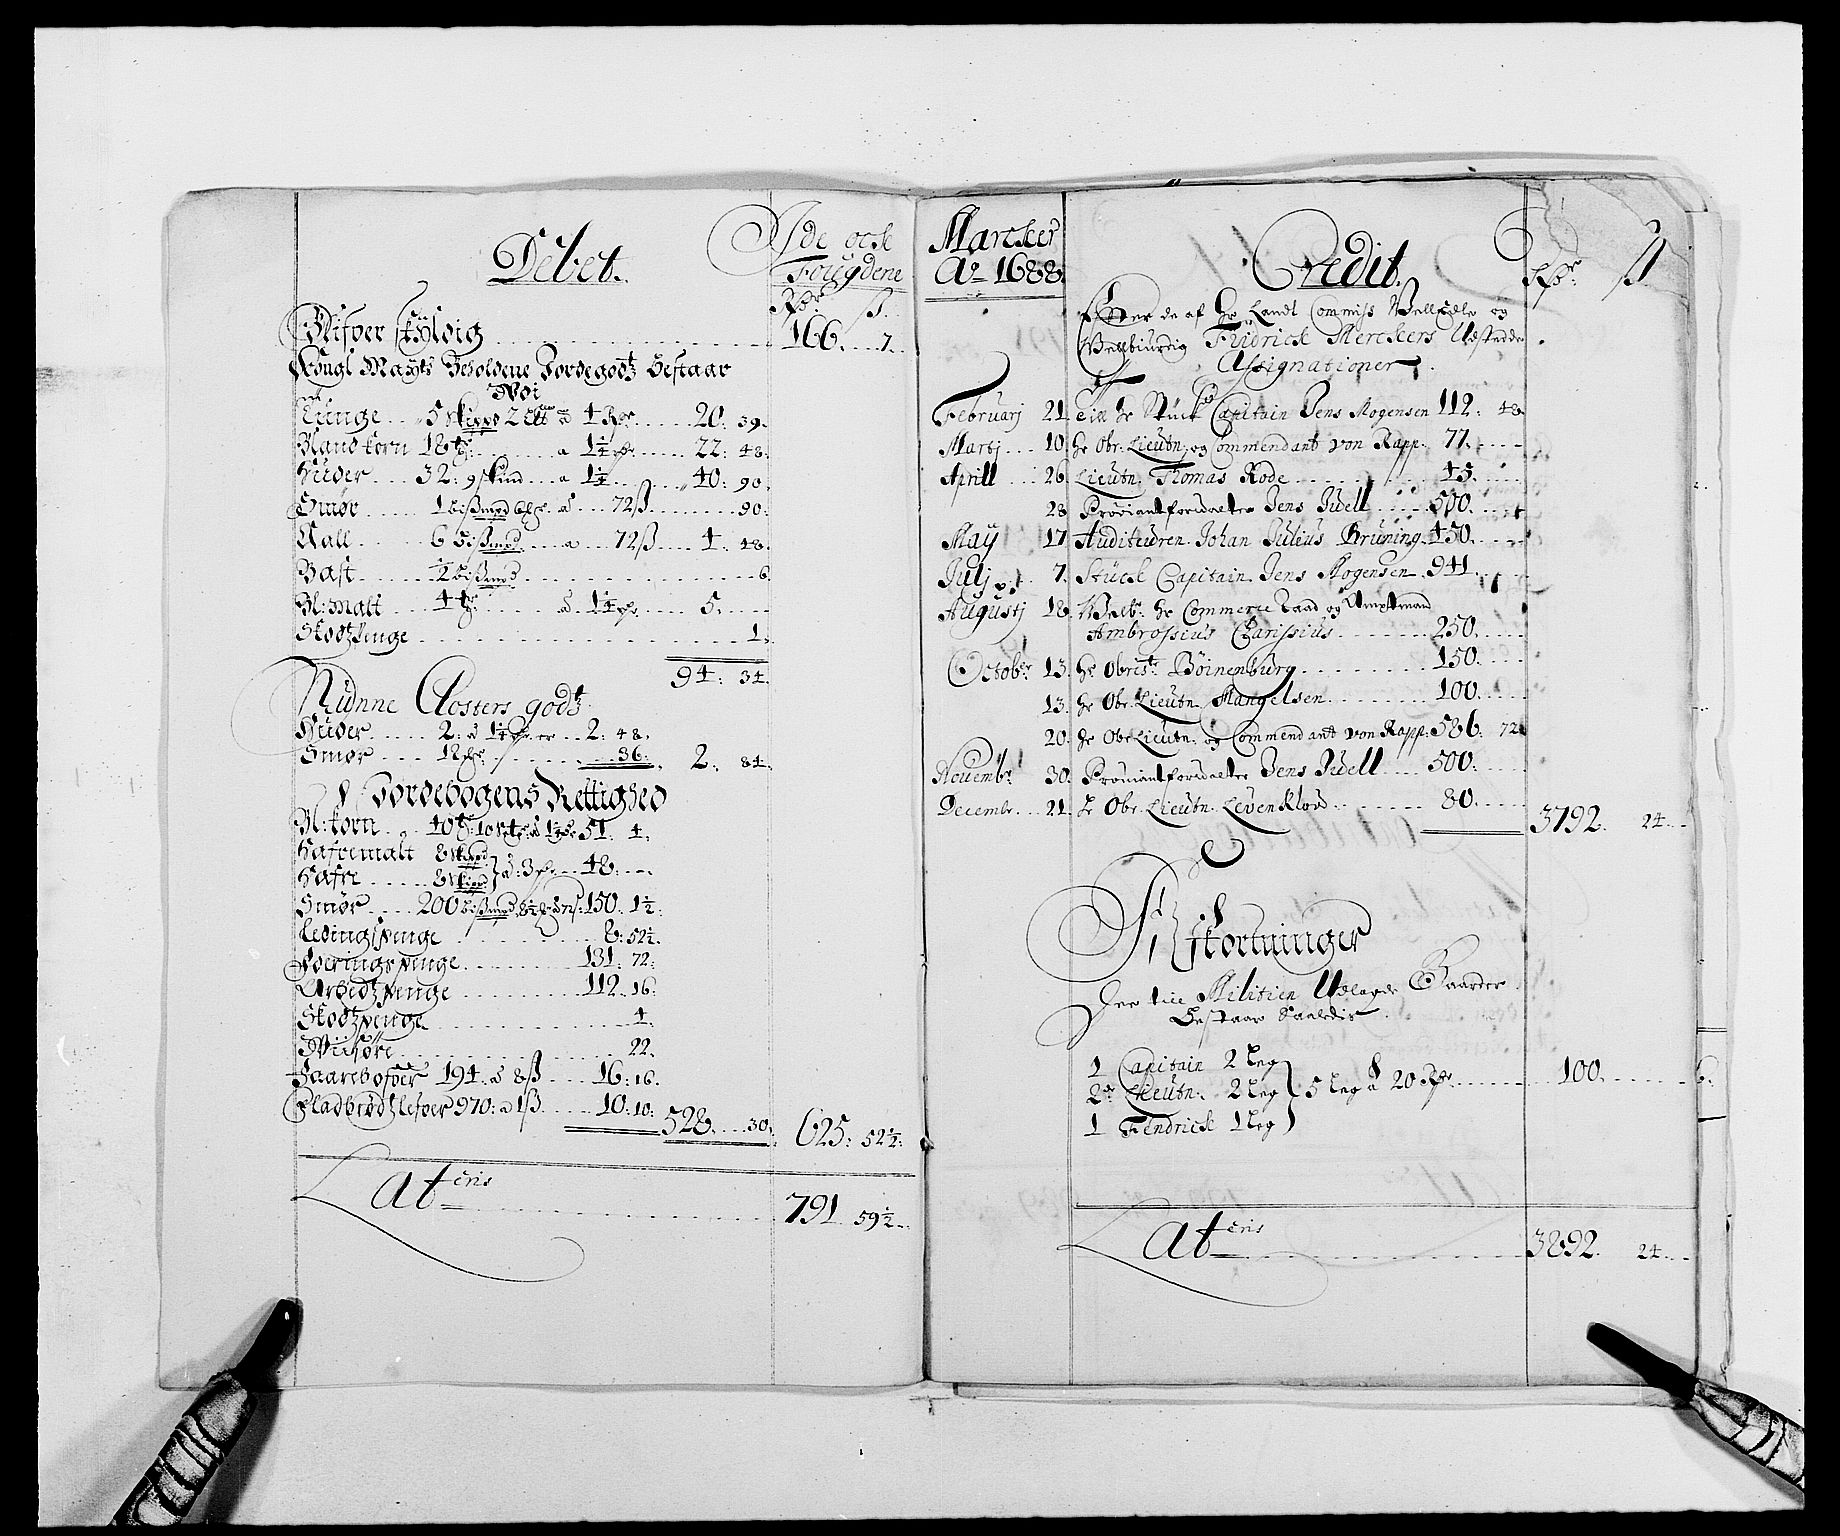 Debet.
Ide och
Fougdene
Rdr. ß.
Blifver skyldig 166. 7.
Kongl Mayts Beholdene Jordegodtz bestaar
Udi
Tunge 5 skippd 2 a 4 Rdr 20: 39.
Blandkorn 18 a 1¼ 22: 48.
Huder 32: 9 skind a 1¼ 40: 90.
Smør 1 bißmpd 6 a 72ß 90.
Aall 6 bißmpd a 72ß 4. 48.
Bast ½ bißmpd 6.
Bl: malt 4 a 1¼ 5.
Skodtzpenge 1.
94: 34.
Nunne Closters godtz
Huder 2: a 1¼ 2: 48.
Smør 18 36. 2. 84.
Jordebogens Rettighed
Bl: korn 40 a 1¼ 51. 4.
Hafremalt 8 skippd
Hafre 8 skippd a 3 48.
Smør 200 bißmpd 150. 1½
Ledingspenge 8: 52½.
Foeringspenge 131: 72:
Arbedtzpenge 112. 16.
Skodtzpenge 4.
Viisøre 22.
Faarebofver 194. a 8ß 16: 16.
Fladbrødslefver 970: a 1ß 10: 10:
528. 30. 625: 52½:
Lateris 791. 59½.
Marcker
Ao 1688.
Credit.
Rdr: ß
Efter de af Hr Landt Commiss Velledle og
Velbiurdig Fridrick Merckers Udstedde
Assignationer.
Februarj 21. Till Hr Stück Capitain Jens Mogensen 112: 48.
Martj 10. Hr Obr: Lieutn: og Commendant von Rapp. 77.
Aprill 26. Lieutn: Thomas Rode 45.
28. Proviantforvalter Jens Juell 500.
May 17. Auditeuren Johan Julius Bruning 450.
Julj 7. Stück Capitain Jens Mogensen 941.
Augustj 18. Velb: Hr Commerce Raad og Amptmand
Ambrossius Charissius 250.
Octobr: 13. Hr Obrist: Böinenburg 150.
13. Hr Obr. Lieutn. Mangelsen 100.
20. Hr Obr Lieutn: og Commendant von Rapp: 586. 72.
Novembr: 30. Proviantforvalter Jens Juell 500.
Decembr. 21. Hr Obr. Lieutn. 80. 3792. 24.
Afkortninger
Den till Militien Udlagde Gaarder
Bestaar Saaledis
1 Capitain 2 leg
2de Lieutn. 2 leg 5 leg a 20 Rdr 100.
1 Fendrick 1 leg
Lateris 3892. 24.